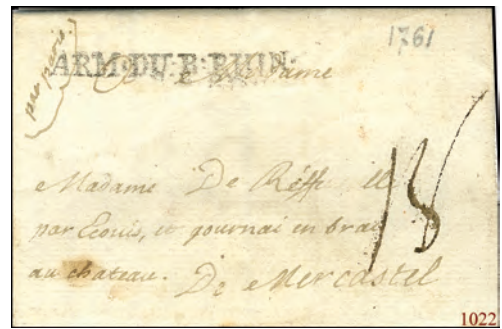 1761
par paris.
ARM:DU:B:RHIN:
Madame
Madame De
18
par Ecouis, et gournai en brai
au chateau. De Mercastel
1022